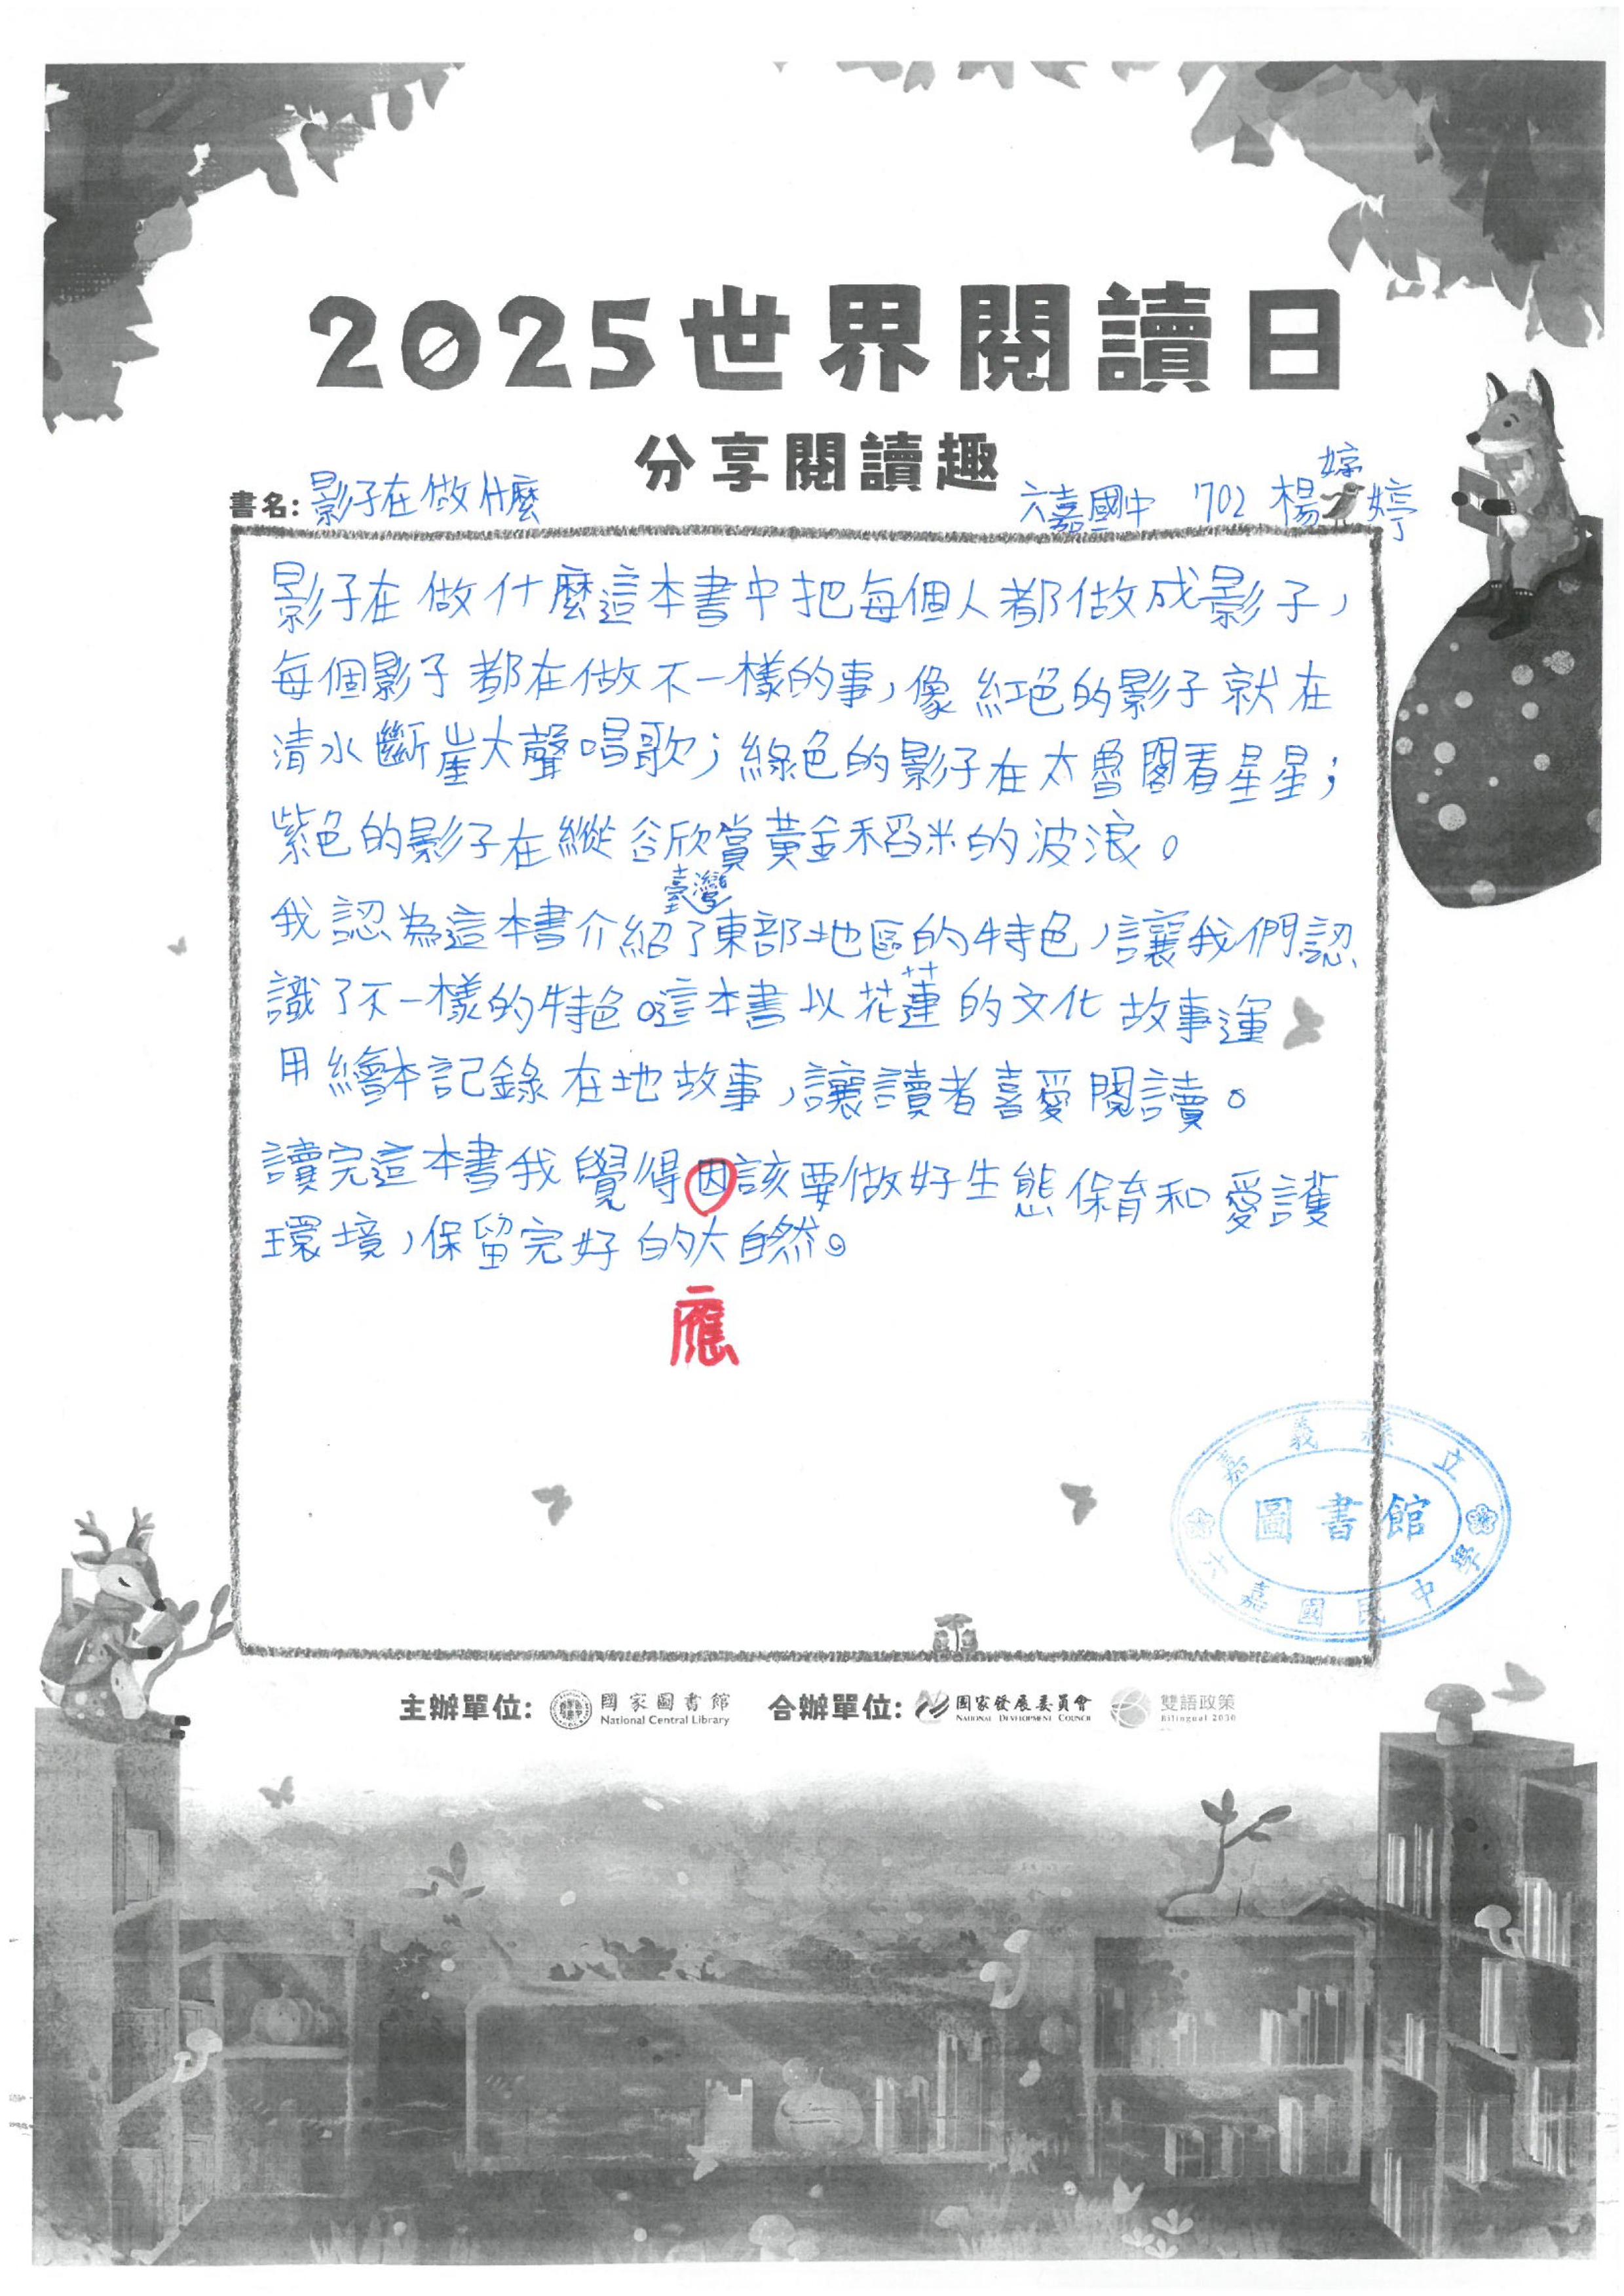 2025世界閱讀日
分享閱讀趣
書名: 影子在做什麼
六嘉國中 702 楊婷婷
影子在做什麼這本書中把每個人都做成影子,
每個影子都在做不一樣的事,像紅色的影子就在
清水斷崖大聲唱歌;綠色的影子在太魯閣看星星;
紫色的影子在縱谷欣賞黃金稻米的波浪。
我認為這本書介紹了臺灣東部地區的特色,讓我們認
識了不一樣的特色。這本書以花蓮的文化故事運
用繪本記錄在地故事,讓讀者喜愛閱讀。
讀完這本書我覺得因該要做好生態保育和愛護
環境,保留完好的大自然。
應
嘉義縣立
圖書館
六嘉國民中學
主辦單位: 國家圖書館 National Central Library 合辦單位: 國家發展委員會 National Development Council 雙語政策 Bilingual 2030